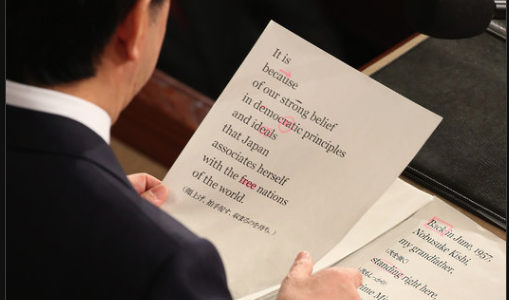 It is
because
of our strong belief
in democratic principles
and ideals
that Japan
associates herself
with the free nations
of the world.
Back in June, 1957,
Nobusuke Kishi,
my grandfather,
standing right here,